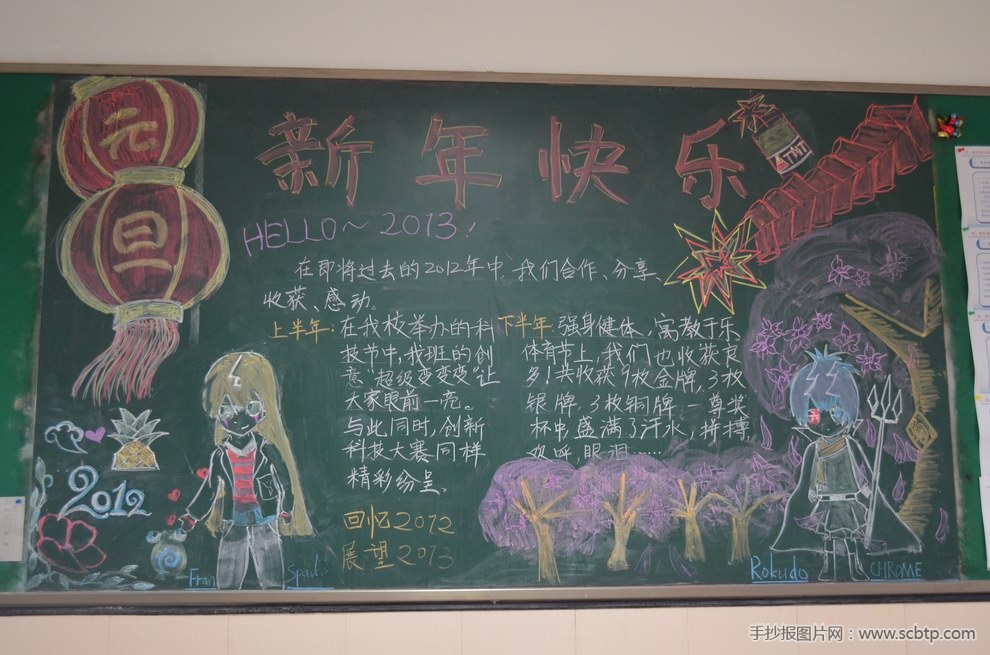 元
旦
新年快乐
HELLO~ 2013!
在即将过去的2012年中、我们合作、分享、
收获、感动.
上半年:在我校举办的科
技节中,我班的创
意"超级变变变"让
大家眼前一亮。
与此同时,创新
科技大赛同样
精彩纷呈.
下半年:强身健体、寓教于乐
体育节上,我们也收获良
多!共收获9枚金牌.3枚
银牌.3枚铜牌.一尊奖
杯中,盛满了汗水,拼搏、
欢呼,眼泪……
回忆2012
展望2013
2012
Fran
Rokudo CHROME
手抄报图片网:www.scbtp.com